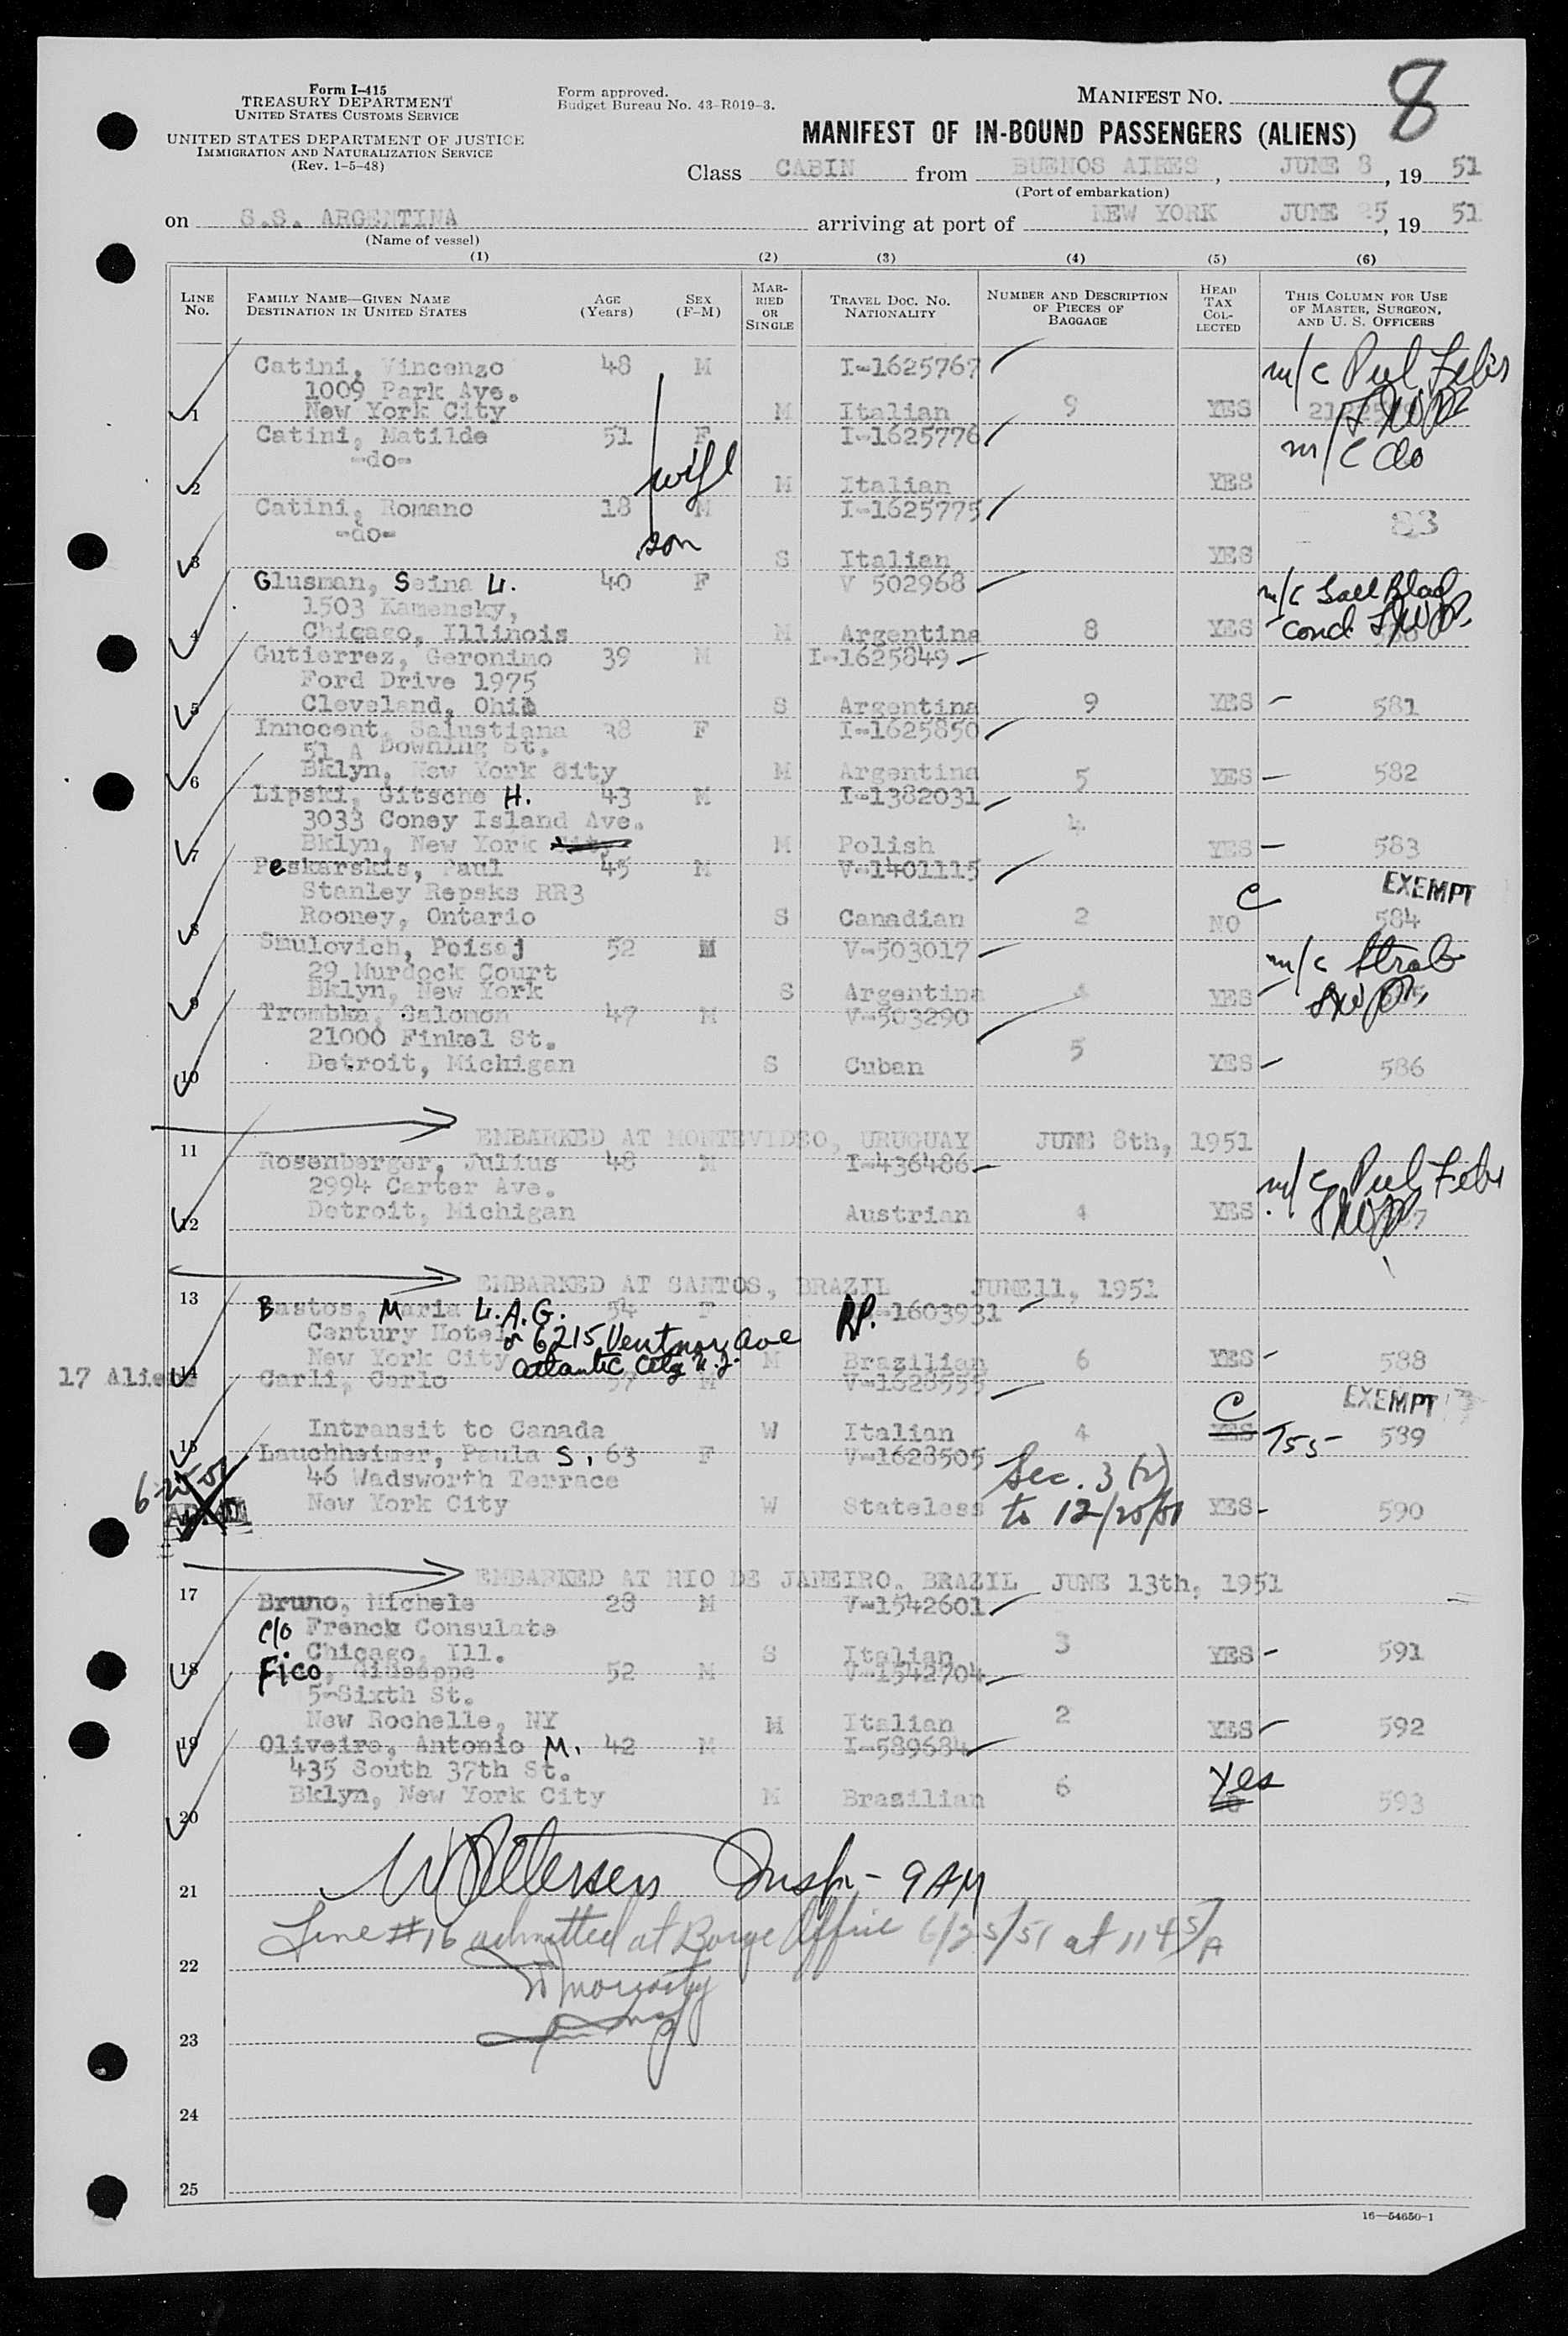 Form I-415
TREASURY DEPARTMENT
UNITED STATES CUSTOMS SERVICE
UNITED STATES DEPARTMENT OF JUSTICE
IMMIGRATION AND NATURALIZATION SERVICE
(Rev. 1-5-48)
Form approved.
Budget Bureau No. 43-R019-3.
MANIFEST NO. 8
MANIFEST OF IN-BOUND PASSENGERS (ALIENS)
Class CABIN from BUENOS AIRES, JUNE 8, 19 51
(Port of embarkation)
on S.S. ARGENTINA arriving at port of NEW YORK JUNE 25, 19 51
(Name of vessel)
(1) (2) (3) (4) (5) (6)
LINE No. FAMILY NAME—GIVEN NAME DESTINATION IN UNITED STATES AGE (Years) SEX (F-M) MARRIED OR SINGLE TRAVEL DOC. NO. NATIONALITY NUMBER AND DESCRIPTION OF PIECES OF BAGGAGE HEAD TAX COLLECTED THIS COLUMN FOR USE OF MASTER, SURGEON, AND U. S. OFFICERS
Catini, Vincenzo 48 M I-1625767 m/c
1009 Park Ave.
1 New York City M Italian 9 YES
Catini, Matilde 51 F I-1625776 m/c do
-do- wife
2 M Italian YES
Catini, Romano 18 M I-1625775
-do- son 83
3 S Italian YES
Glusman, Seina L. 40 F V 502968 m/c
1503 Kamensky,
4 Chicago, Illinois M Argentina 8 YES Cond.
Gutierrez, Geronimo 39 M I-1625849
Ford Drive 1975
5 Cleveland, Ohio S Argentina 9 YES 581
Innocent, Salustiana 38 F I-1625850
51 A Downing St.
6 Bklyn, New York City M Argentina 5 YES 582
Lipski, Gitsche H. 43 M I-1382031
3033 Coney Island Ave. 4
7 Bklyn, New York City M Polish YES 583
Peskarskis, Paul 45 M V-1401115
Stanley Repsks RR3 C EXEMPT
8 Rooney, Ontario S Canadian 2 NO 584
Smulovich, Peisaj 52 M V-503017 m/c
29 Murdock Court
9 Bklyn, New York S Argentina 4 YES
Trombka, Salomon 47 M V-503290
21000 Finkel St. 5
10 Detroit, Michigan S Cuban YES 586
11 EMBARKED AT MONTEVIDEO, URUGUAY JUNE 8th, 1951
Rosenberger, Julius 48 M I-436486 m/c
2994 Carter Ave.
12 Detroit, Michigan Austrian 4 YES
13 EMBARKED AT SANTOS, BRAZIL JUNE11, 1951
Bastos, Maria L.A.G. 54 F RP.-1603931
Century Hotel or 6215 Ventnor Ave
14 New York City Atlantic City N.J. M Brazilian 6 YES 588
17 Aliens Carli, Carlo 57 M V-1628555
C EXEMPT
15 Intransit to Canada W Italian 4 YES 589
Lauchheimer, Paula S. 63 F V-1628505
46 Wadsworth Terrace Sec. 3 (2)
New York City W Stateless to 12/20/51 YES 590
17 EMBARKED AT RIO DE JANEIRO, BRAZIL JUNE 13th, 1951
Bruno, Michele 28 M V-1542601
c/o French Consulate
18 Chicago, Ill. S Italian 3 YES 591
Fico, Giuseppe 52 M V-1542704
5-Sixth St.
19 New Rochelle, NY M Italian 2 YES 592
Oliveira, Antonio M. 42 M I-589684
435 South 37th St.
20 Bklyn, New York City M Brasilian 6 Yes 593
21 W Petersen Insp- 9 AM
Line #16 admitted at Barge Office 6/25/51 at 1145/A
22
23
24
25
16—54650-1